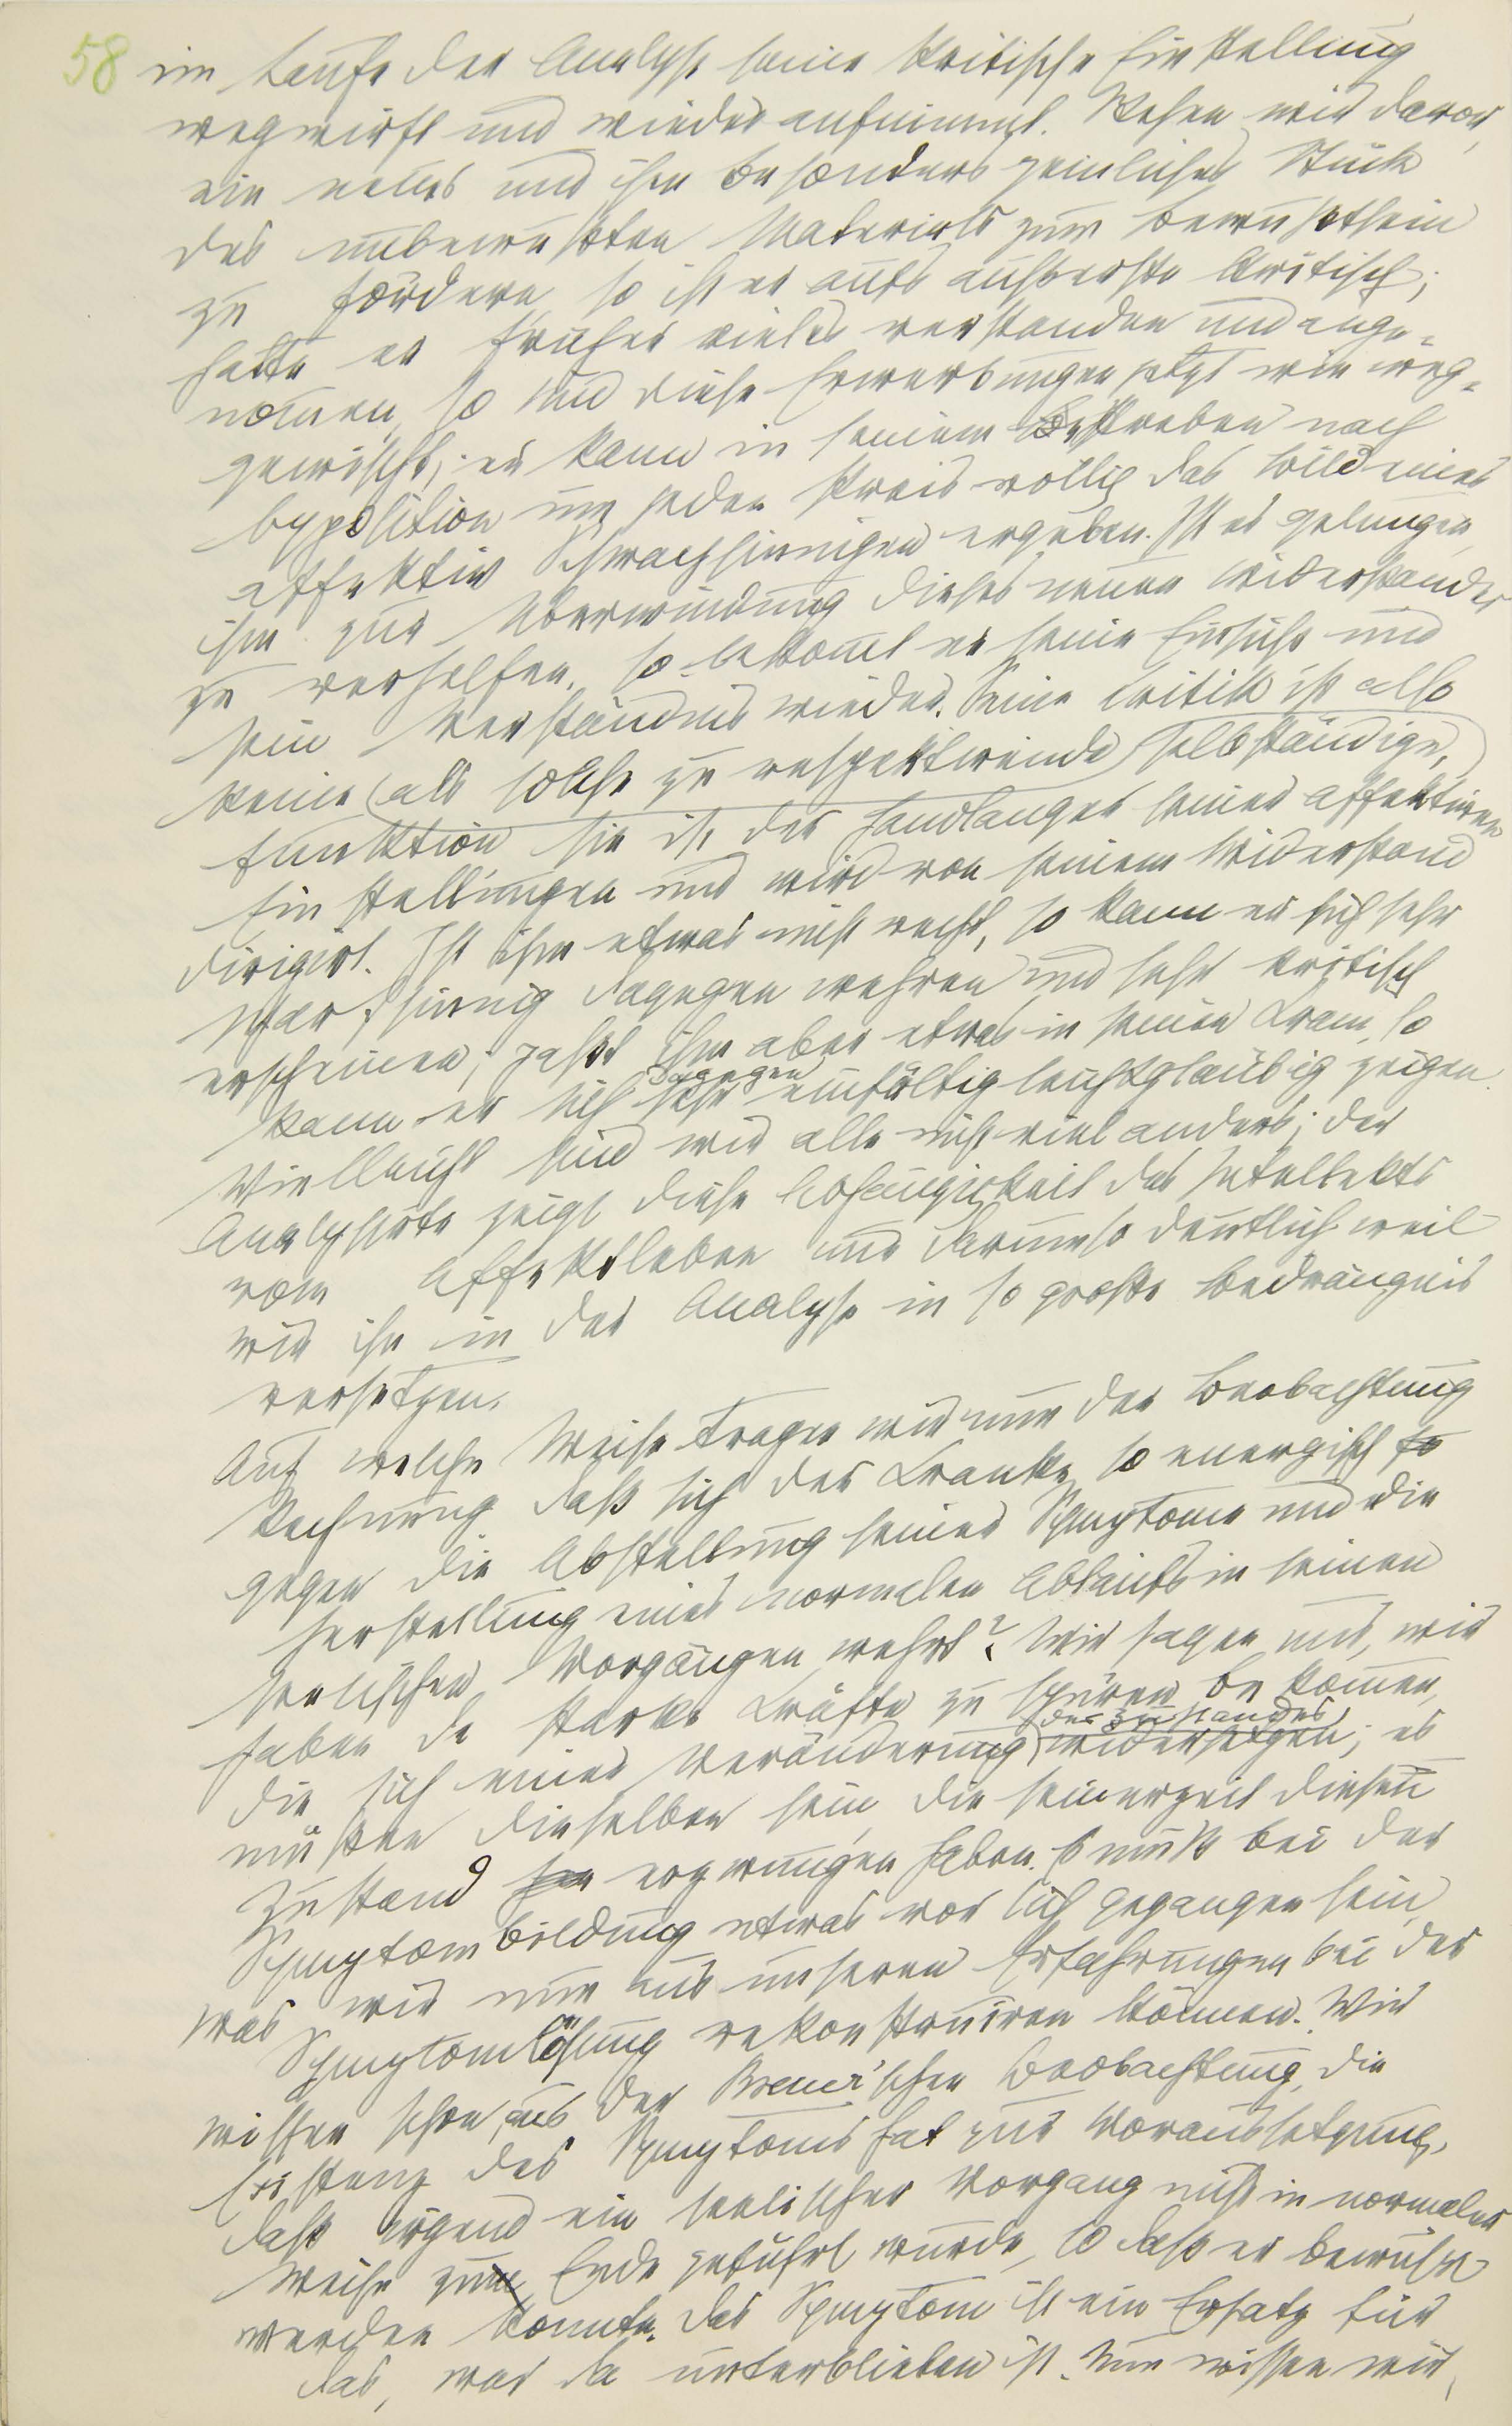 58
im Laufe der Analyse seine kritische Einstellung
wegwirft und wieder aufnimmt. Stehen wir davor,
ein neues und ihm besonders peinliches Stück
des unbewußten Materials zum Bewußtsein
zu fördern, so ist er aufs äußerste kritisch;
hatte er früher vieles verstanden und ange-
nommen, so sind diese Erwerbungen jetzt wie weg-
gewischt; er kann in seinem Bestreben nach
Opposition um jeden Preis völlig das Bild eines
affektiv Schwachsinnigen ergeben. Ist es gelungen,
ihm zur Überwindung dieses neuen Widerstandes
zu verhelfen, so bekommt er seine Einsicht und
sein Verständnis wieder. Seine Kritik ist also
keine (als solche zu respektirende) selbständige,
Funktion sie ist der Handlanger seiner affektiven
Einstellungen und wird von seinem Widerstand
dirigirt. Ist ihm etwas nicht recht, so kann er sich sehr
scharfsinnig dagegen wehren und sehr kritisch
erscheinen; paßt ihm aber etwas in seinen Kram, so
kann er sich dagegen sehr einfältig leichtgläubig zeigen.
Vielleicht sind wir alle nicht viel anders; der
Analysirte zeigt diese Abhängigkeit des Intellekts
vom Affektleben nur darum so deutlich, weil
wir ihn in der Analyse in so große Bedrängnis
versetzen.
Auf welche Weise tragen wir nun der Beobachtung
Rechnung, daß sich der Kranke so energisch so
gegen die Abstellung seiner Symptome und die
Herstellung eines normalen Ablaufs in seinen
seelischen Vorgängen wehrt? Wir sagen uns, wir
haben da starke Kräfte zu spüren bekommen,
die sich einer Veränderung des Zustandes widersetzen; es
müssen dieselben sein, die seinerzeit diesen
Zustand erzwungen haben. Es muß bei der
Symptombildung etwas vor sich gegangen sein,
was wir nun aus unseren Erfahrungen bei der
Symptomlösung rekonstruiren können. Wir
wissen schon aus der Breuer'schen Beobachtung, die
Existenz des Symptoms hat zur Voraussetzung,
daß irgend ein seelischer Vorgang nicht in normaler
Weise zu Ende geführt wurde, so daß er bewußt
werden konnte. Das Symptom ist ein Ersatz für
das, was da unterblieben ist. Nun wissen wir,